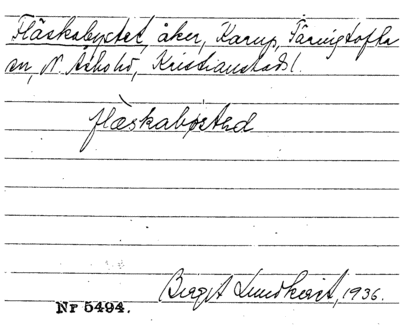 Fläskabyxtet, åker, Karup, Färingtofta
sn, N. Åsbohd, Kristianstads l.
flæskabystəd
Birgit Lundkvist, 1936.
Nr 5494.